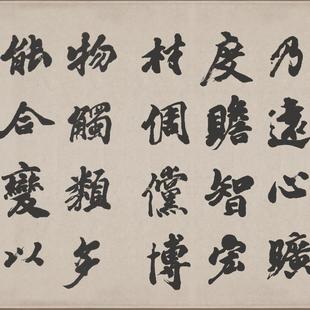 乃遠心曠
度瞻智宏
材倜儻博
物觸類多
能合變以